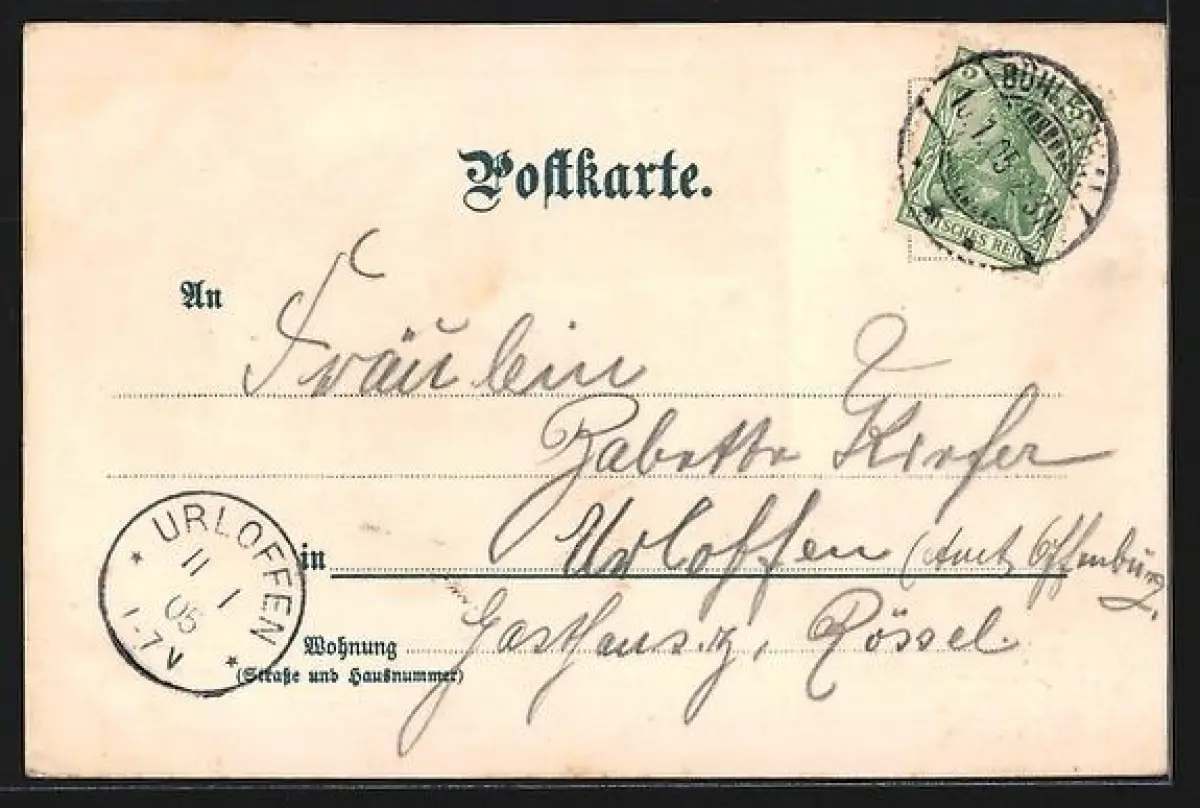 Postkarte.
5
DEUTSCHES REICH
An
Fräulein
Babette Kiefer
in Urloffen (Amt Offenburg,
Wohnung Gasthaus z. Rössel.
(Straße und Hausnummer)
URLOFFEN
11
1
05
1-7V